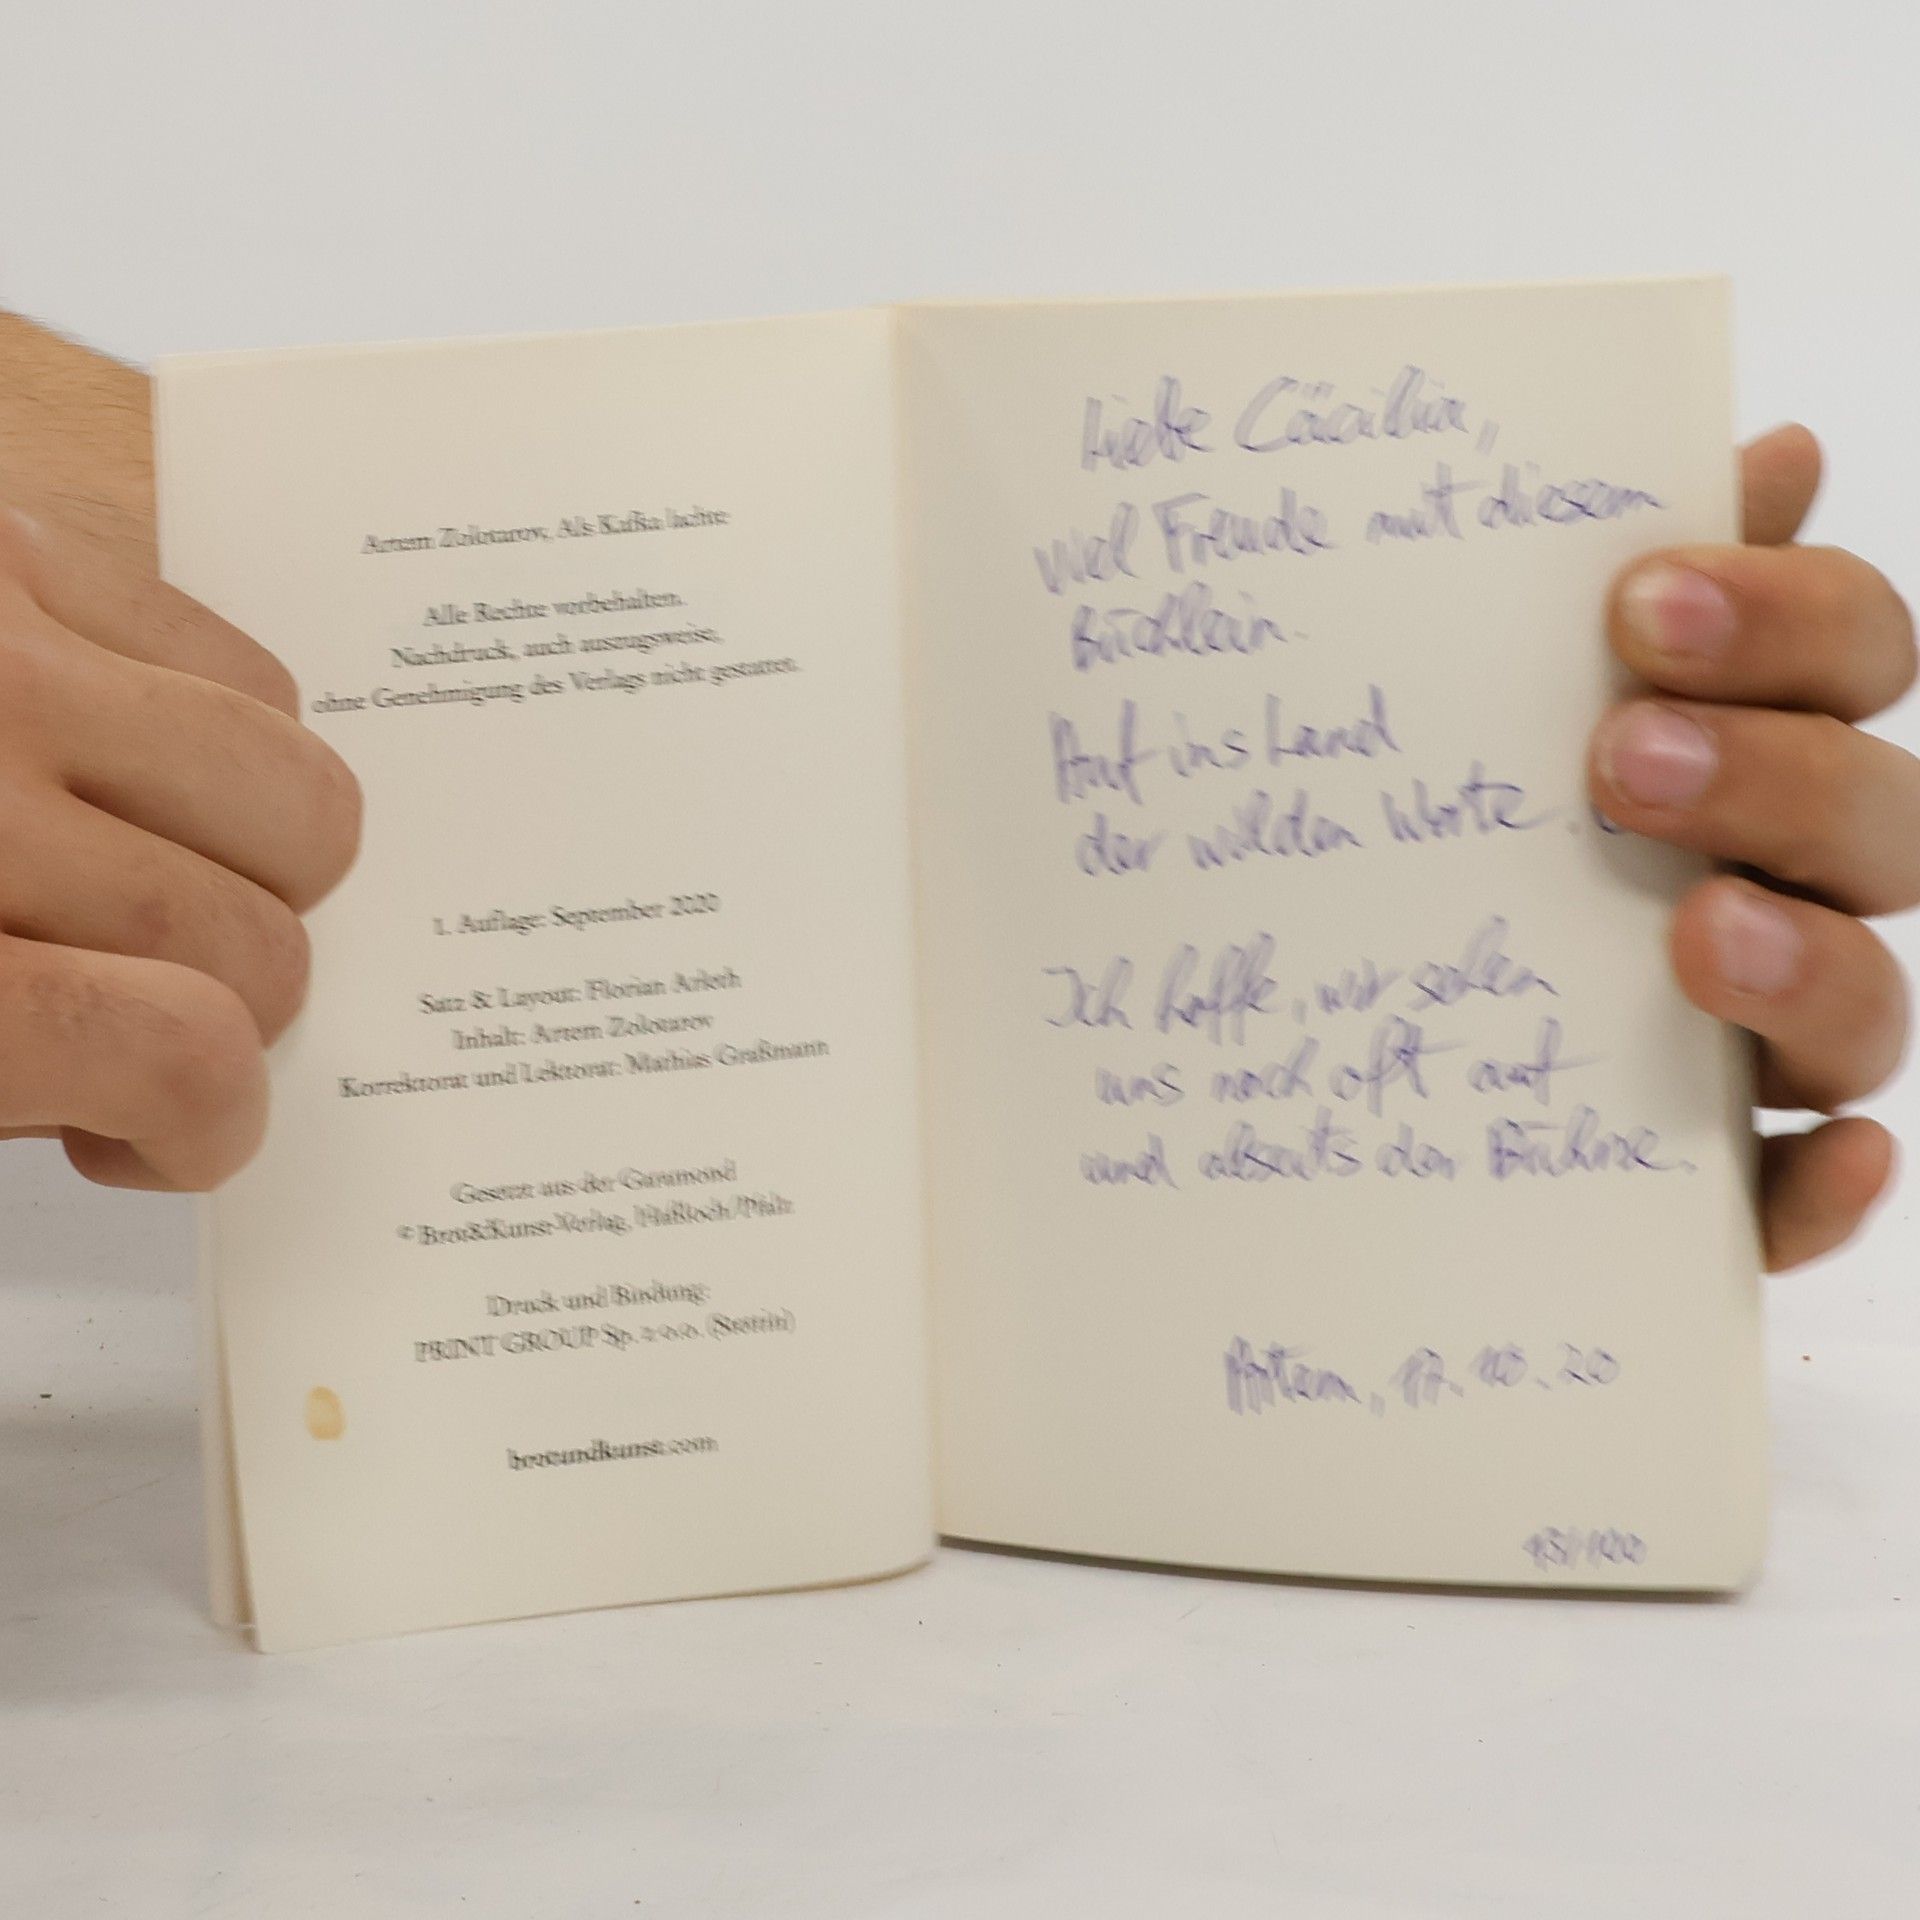 Artem Zolotarov, Als Kafka lachte
Alle Rechte vorbehalten.
Nachdruck, auch auszugsweise,
ohne Genehmigung des Verlags nicht gestattet.
1. Auflage: September 2020
Satz & Layout: Florian Arleth
Inhalt: Artem Zolotarov
Korrektorat und Lektorat: Mathias Graßmann
Gesetzt aus der Garamond
© Brot&Kunst-Verlag, Haßloch/Pfalz
Druck und Bindung:
PRINT GROUP Sp. z o.o. (Stettin)
brotundkunst.com
Liebe Cäcillia,
viel Freude mit diesem
Büchlein.
Auf ins Land
der wilden Worte.
Ich hoffe, wir sehen
uns noch oft auf
und abseits der Bühne.
Artem, 17.10.20
/100